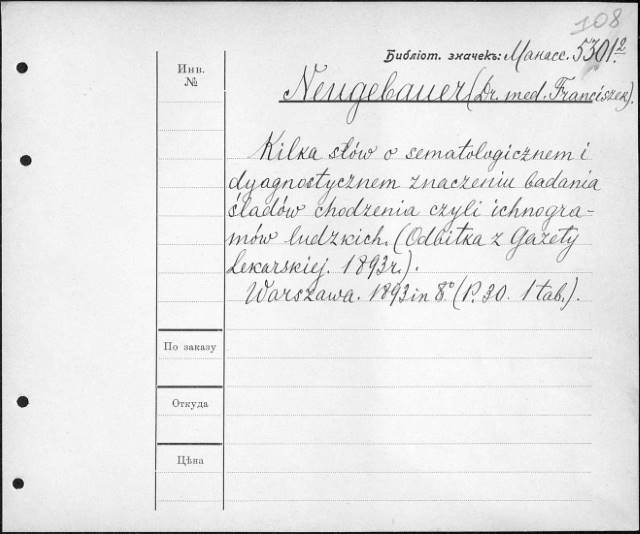 108
Библіот. значекъ: Манасс. 5301.²
Инв.
№
Neugebauer (Dr. med. Franciszek).
Kilka słów o sematologicznem i
dyagnostycznem znaczeniu badania
śladów chodzenia czyli ichnogra-
mów ludzkich. (Odbitka z Gazety
Lekarskiej. 1893r.).
Warszawa. 1893 in 8° (P. 30. 1 tab.).
По заказу
Откуда
Цѣна